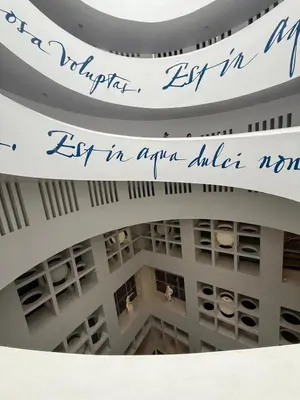 osa voluptas. Est in aq
. Est in aqua dulci non